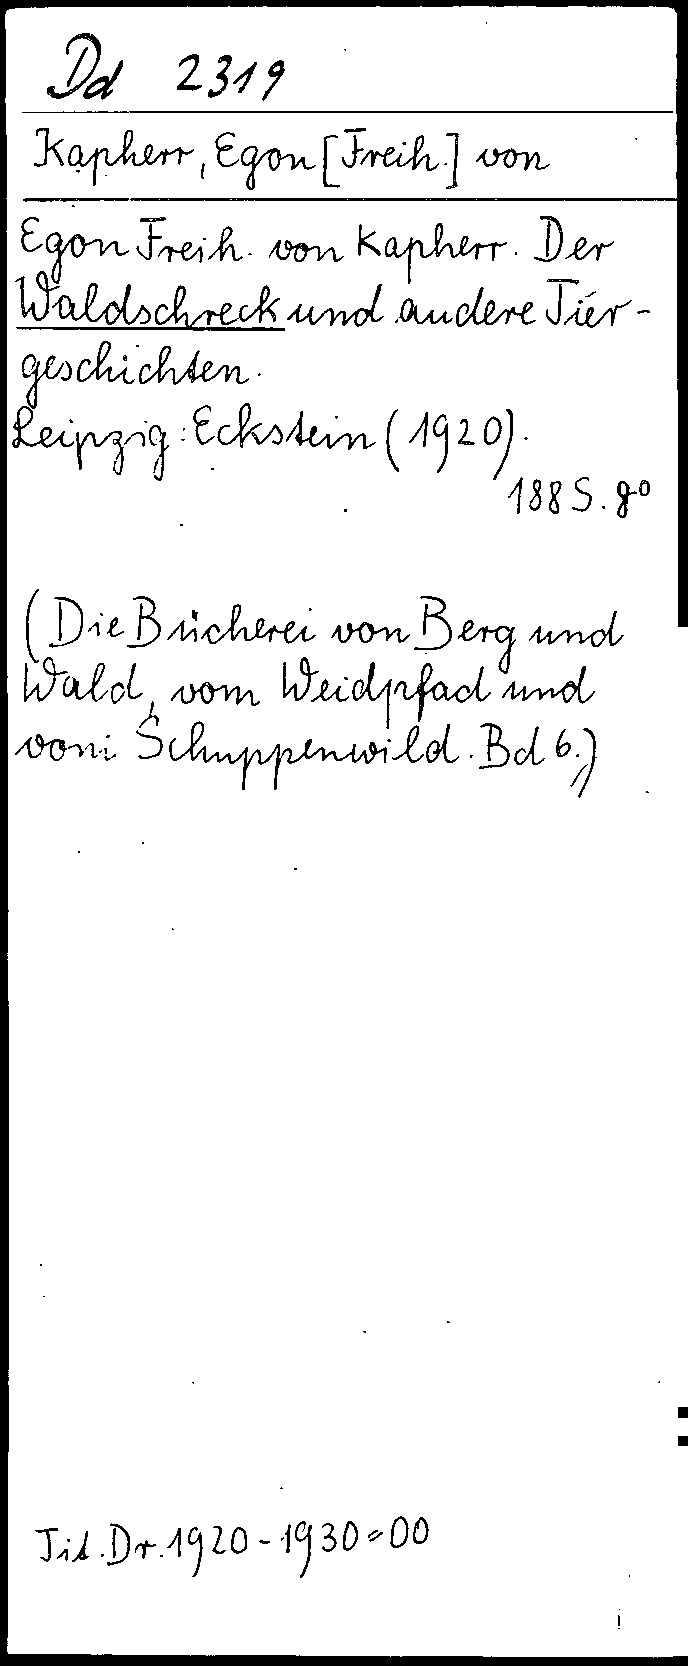 Dd 2319
Kapherr, Egon [Freih.] von
Egon Freih. von Kapherr. Der
Waldschreck und andere Tier-
geschichten.
Leipzig: Eckstein (1920).
188 S. 8°
(Die Bücherei von Berg und
Wald, vom Weidpfad und
vom Schuppenwild. Bd 6.)
Tit. Dr. 1920-1930=00